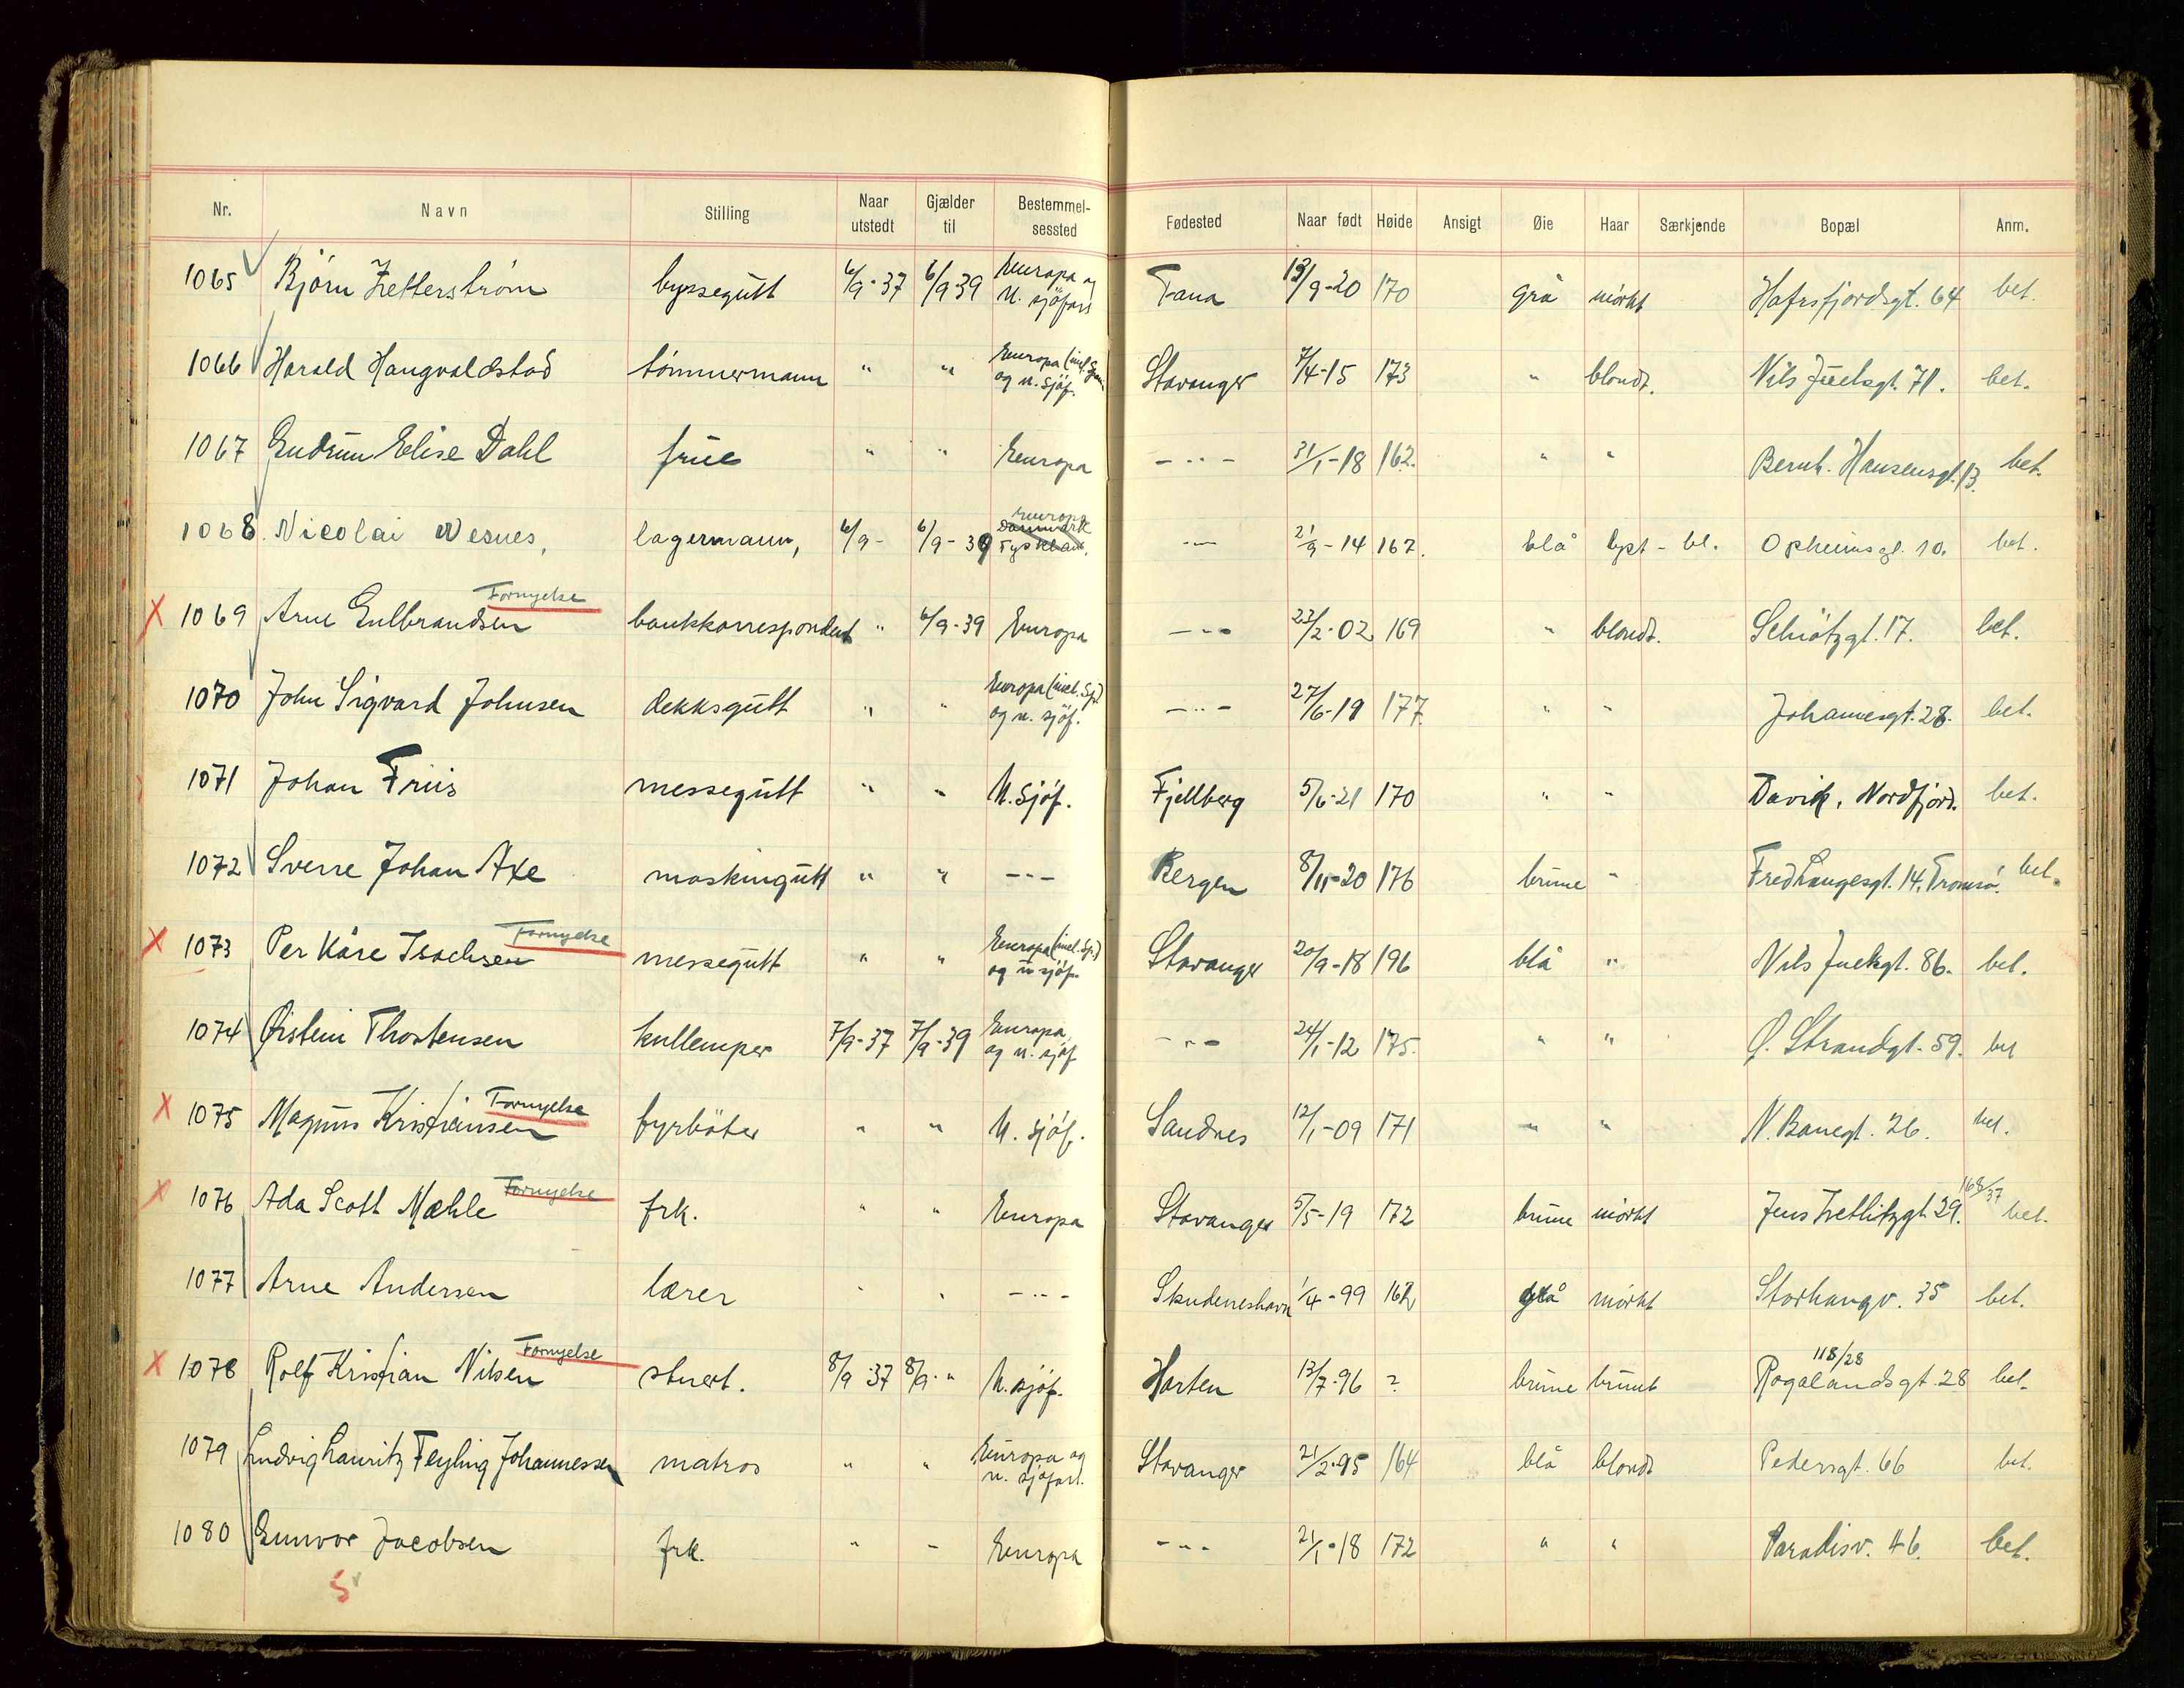 Nr. Navn Stilling Naar utstedt Gjælder til Bestemmel- sessted Fødested Naar født Høide Ansigt Øie Haar Særkjende Bopæl Anm.
1065 Bjørn Zetterstrøm byssegutt 6/9-37 6/9 39 Europa og u. sjöfart Fana 13/9-20 170 grå mörkt Hafrsfjordsgt. 64 bet.
1066 Harald Haugvaldstad tömmermann " " Europa (incl. og u. sjöf. Stavanger 7/4-15 173 " blondt. Nils Juelsgt. 71. bet.
1067 Gudrun Elise Dahl frue " " Europa -"- 31/1-18 162. " " Bernh. Hansensgt. 13. bet.
1068. Nicolai Wesnes, lagermann, 6/9- 6/9-39 Europa Danmark Tyskland. -"- 21/9-14 167. blå lyst-bl. Opheimsgt. 10. bet.
Fornyelse
X 1069 Arne Gulbrandsen bankkorrespondent " 6/9-39 Europa -"- 22/2-02 169 " blondt. Schiötzgt. 17. bet.
1070 John Sigvard Johnsen dekksgutt " " Europa (incl. Sp.) og u. sjöf. -"- 27/6-19 177. " " Johannesgt. 28. bet.
1071 Johan Friis messegutt " " U. sjöf. Fjellberg 5/6-21 170 " " Davik, Nordfjord. bet.
1072 Sverre Johan Axe maskingutt " " -"- Bergen 8/11-20 176 brune " Fred Langesgt. 14, Tromsö. bet.
Fornyelse
X 1073 Per Kåre Isachsen messegutt " " Europa (incl. Sp.) og u sjöf. Stavanger 20/9-18 196 blå " Nils Juelsgt. 86. bet.
1074 Øistein Thorstensen kullemper 7/9-37 7/9-39 Europa og u. sjöf -"- 24/1-12 175. " " Ø. Strandgt. 59. bet
Fornyelse
X 1075 Magnus Kristiansen fyrböter " " U. sjöf. Sandnes 12/1-09 171 " " N. Banegt. 26. bet.
Fornyelse
X 1076 Ada Scott Mæhle frk. " " Europa Stavanger 5/5-19 172 brune mörkt Jens Zetlitzgt. 29. 168/37 bet.
1077 Arne Andersen lærer " " -"- Skudeneshavn 1/4-99 162 grå mörkt Storhaugv. 35 bet.
Fornyelse 118/28
X 1078 Rolf Kristian Nilsen stuert. 8/9-37 8/9-" U. sjöf. Horten 13/7-96 ? brune brunt Rogalandsgt. 28 bet.
1079 Ludvig Lauritz Feyling Johannessen matros " " Europa og u. sjöfart. Stavanger 21/2-95 164 blå blondt Pedersgt. 66 bet.
1080 Gunvor Jacobsen frk. " " Europa -"- 21/1-18 172 " " Paradisv. 46. bet.
5